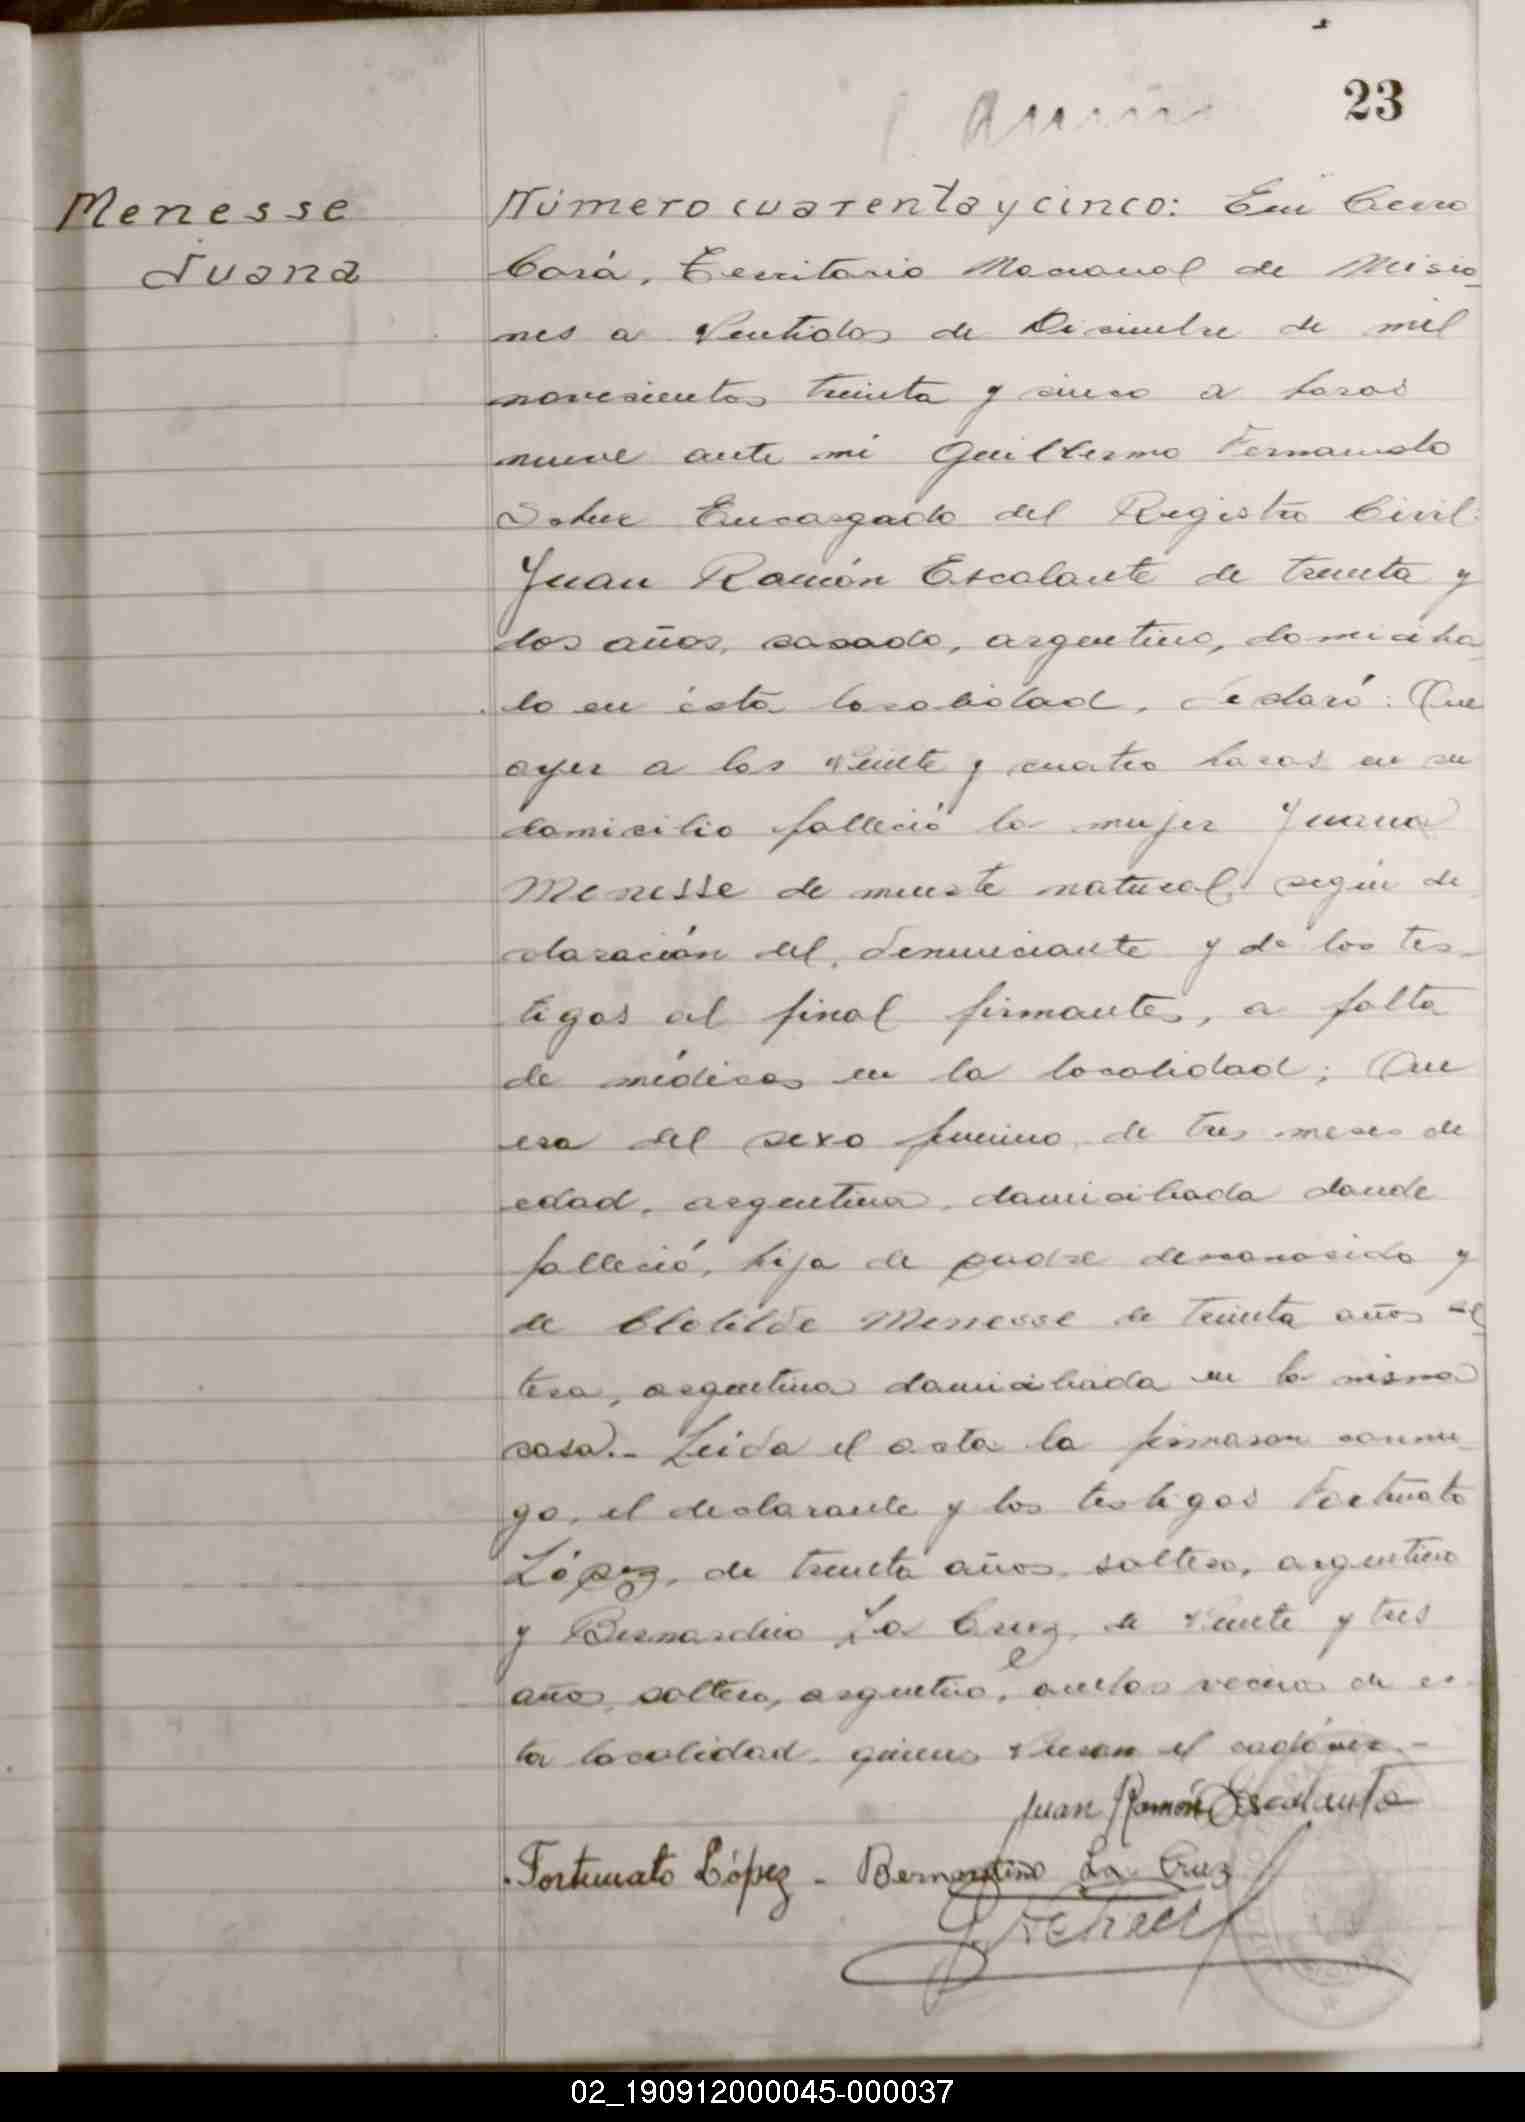 23
Menesse
Juana
Número cuarenta y cinco: En Cerro
Corá, Territorio Nacional de Misio
nes a veintidos de Diciembre de mil
novecientos treinta y cinco a horas
nueve ante mi Guillermo Fernando
Encargado del Registro Civil:
Juan Ramón Escalante de treinta y
dos años, casado, argentino, domicilia
do en ésta localidad, declaró: Que
ayer a las veinte y cuatro horas en su
domicilio falleció la mujer Juana
Menesse de muerte natural según de
claración del denunciante y de los tes-
tigos al final firmantes, a falta
de médicos en la localidad; Que
era del sexo femenino, de tres meses de
edad, argentina, domiciliada donde
falleció, hija de padre desconocido y
de Clotilde Menesse de treinta años sol
tera, argentina domiciliada en la misma
casa.- Leida el acta la firmaron conmi-
go, el declarante y los testigos Fortunato
López, de treinta años, soltero, argentino
y Bernardino La Cruz, de veinte y tres
años, soltero, argentino, ambos vecinos de es-
ta localidad quienes vieron el cadáver.-
Juan Ramón Escalante
Fortunato López - Bernardino La Cruz
02_190912000045-000037